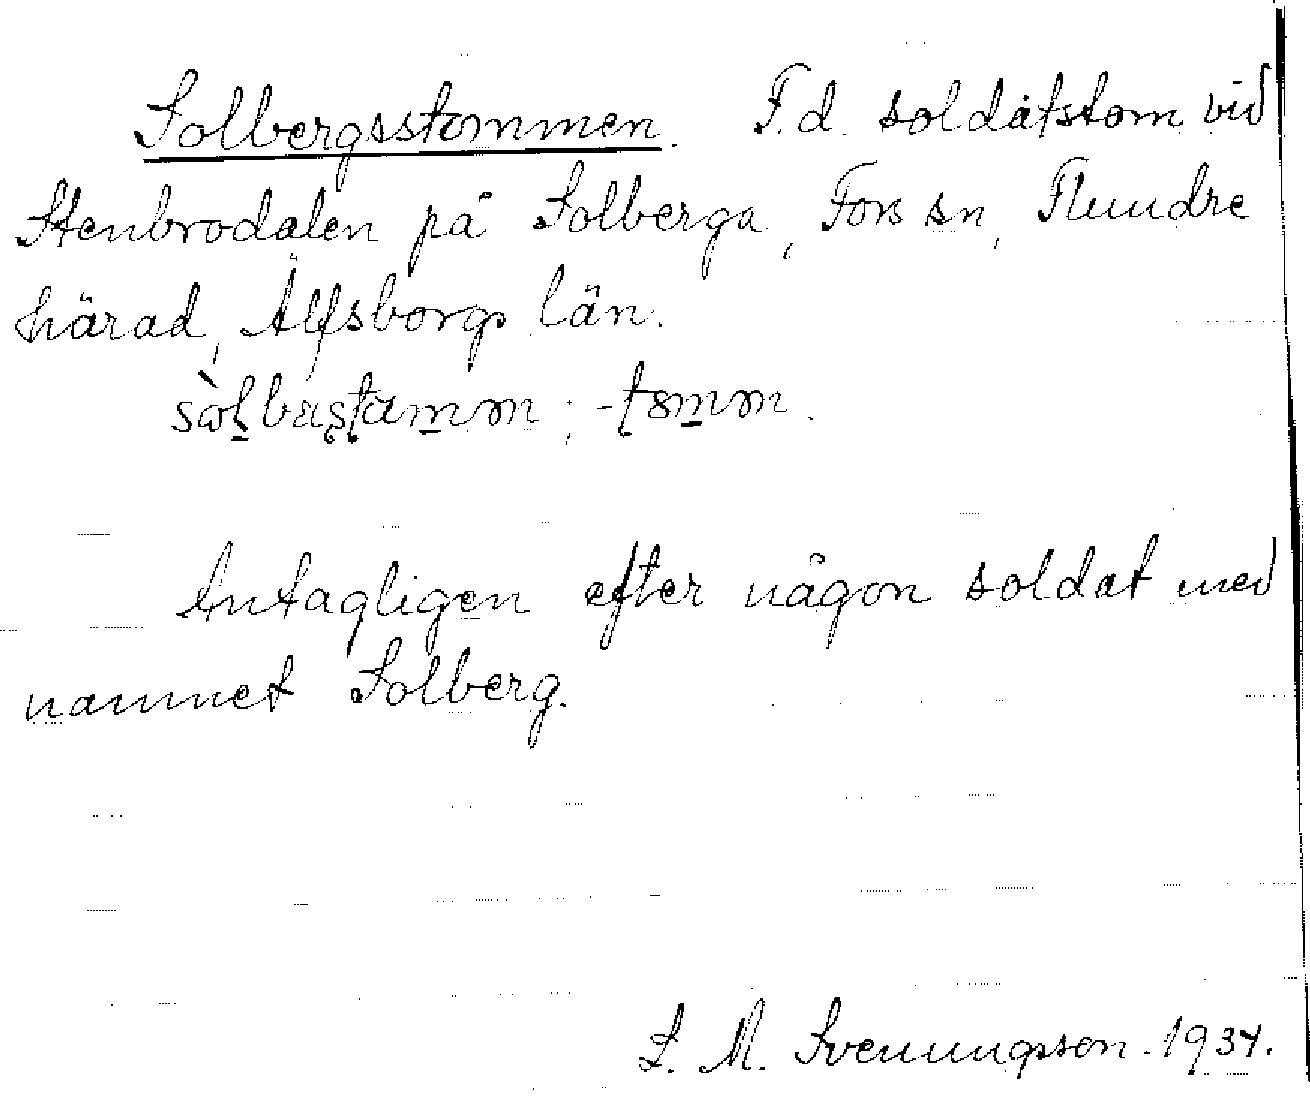 Solbergsstommen. F.d. soldatstom vid
Stenbrodalen på Solberga, Fors sn, Flundre
härad, Älfsborgs län.
Antagligen efter någon soldat med
namnet Solberg.
S. M. Svenungsson. 1934.